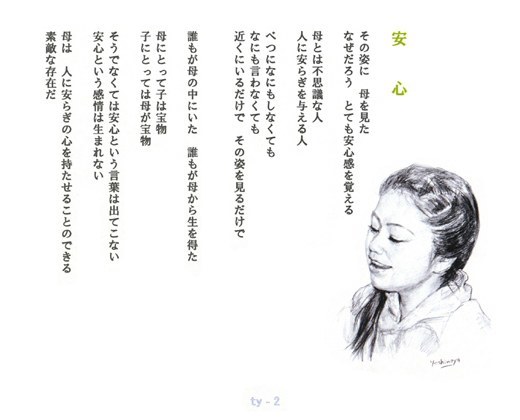 安心
その姿に　母を見た
なぜだろう　とても安心感を覚える
母とは不思議な人
人に安らぎを与える人
べつになにもしなくても
なにも言わなくても
近くにいるだけで　その姿を見るだけで
誰もが母の中にいた　誰もが母から生を得た
母にとって子は宝物
子にとっては母が宝物
そうでなくては安心という言葉は出てこない
安心という感情は生まれない
母は　人に安らぎの心を持たせることのできる
素敵な存在だ
ty - 2